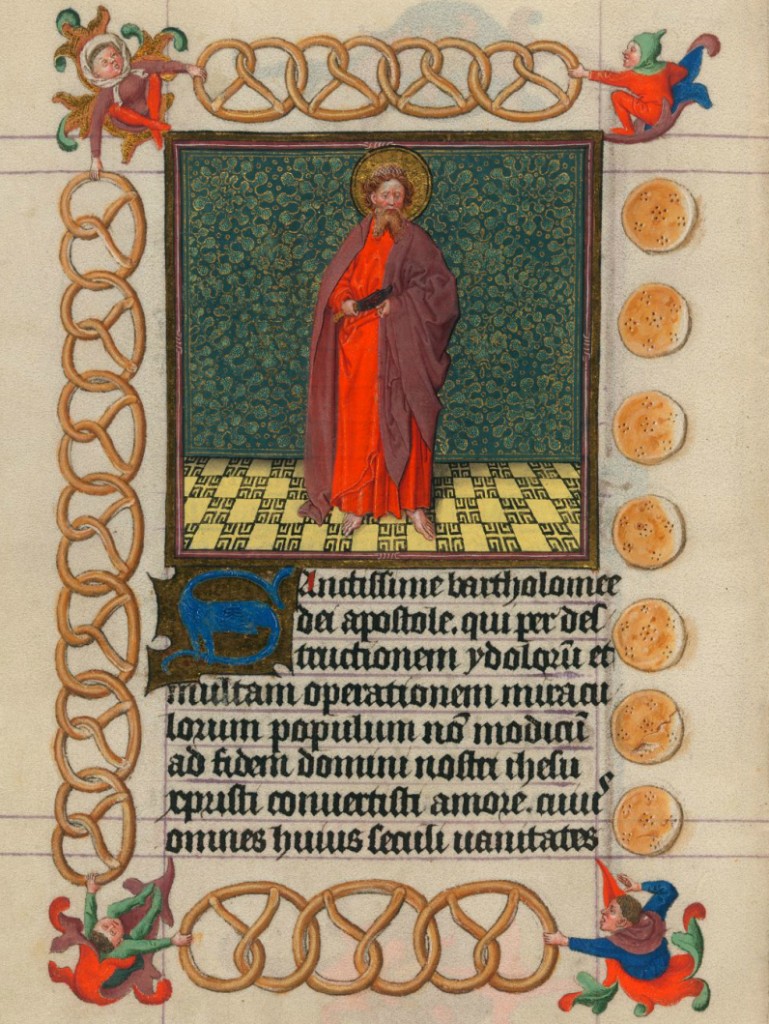 Sanctissime bartholomee
dei apostole. qui per des
tructionem ydolorū et
multam operationem miracu
lorum populum nō modicū
ad fidem domini nostri ihesu
xpristi conuertisti amore. cuiꝰ
omnes huius seculi uanitates